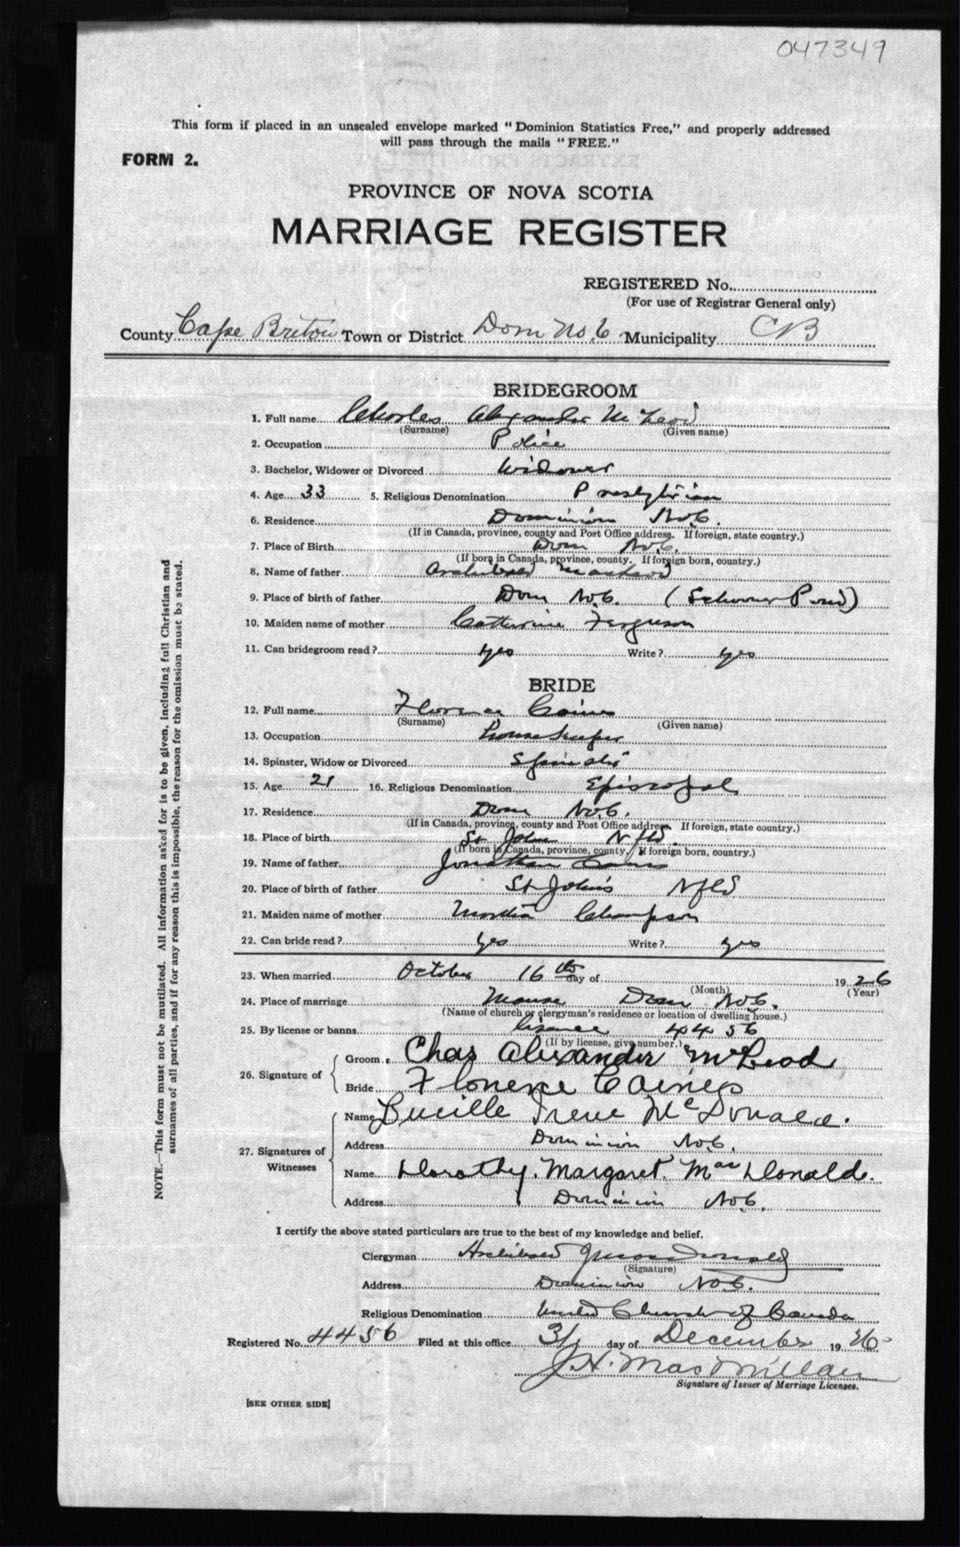 047349
This form if placed in an unsealed envelope marked "Dominion Statistics Free," and properly addressed
will pass through the mails "FREE."
FORM 2.
PROVINCE OF NOVA SCOTIA
MARRIAGE REGISTER
REGISTERED No.
(For use of Registrar General only)
County Cape Breton Town or District Dom No. 6. Municipality CB
BRIDEGROOM
1. Full name Charles Alexander McLeod
(Surname) (Given name)
2. Occupation Police
3. Bachelor, Widower or Divorced Widower
4. Age 33 5. Religious Denomination Presbyterian
6. Residence Dominion No 6.
(If in Canada, province, county and Post Office address. If foreign, state country.)
7. Place of Birth Dom No 6.
(If born in Canada, province, county. If foreign born, country.)
8. Name of father Archibald MacLeod
9. Place of birth of father Dom No 6. (Schooner Pond)
10. Maiden name of mother Catherine Ferguson
11. Can bridegroom read? yes Write? yes
BRIDE
12. Full name Florence Caines
(Surname) (Given name)
13. Occupation Housekeeper
14. Spinster, Widow or Divorced Spinster
15. Age 21 16. Religious Denomination Episcopal
17. Residence Dom No 6.
(If in Canada, province, county and Post Office address. If foreign, state country.)
18. Place of birth St John Nfld.
(If born in Canada, province, county. If foreign born, country.)
19. Name of father Jonathan Caines
20. Place of birth of father St John's Nfld
21. Maiden name of mother Martha
22. Can bride read? yes Write? yes
23. When married October 16th day of 1926
(Month) (Year)
24. Place of marriage Manse Dom No 6.
(Name of church or clergyman's residence or location of dwelling house.)
25. By license or banns lisence 4456
(If by license, give number.)
26. Signature of
Groom Chas Alexander McLeod
Bride Florence Caines
27. Signatures of Witnesses
Name Lucille Irene McDonald.
Address Dominion No 6.
Name Dorothy. Margaret. MacDonald.
Address Dominion No 6.
I certify the above stated particulars are true to the best of my knowledge and belief.
Clergyman Archibald
(Signature)
Address Dominion No 6.
Religious Denomination United Church of Canada
Registered No. 4456 Filed at this office 31 day of December 1926
J. H. MacMillan
Signature of Issuer of Marriage Licenses.
[SEE OTHER SIDE]
NOTE.—This form must not be mutilated. All information asked for is to be given, including full Christian and
surnames of all parties, and if for any reason this is impossible, the reason for the omission must be stated.